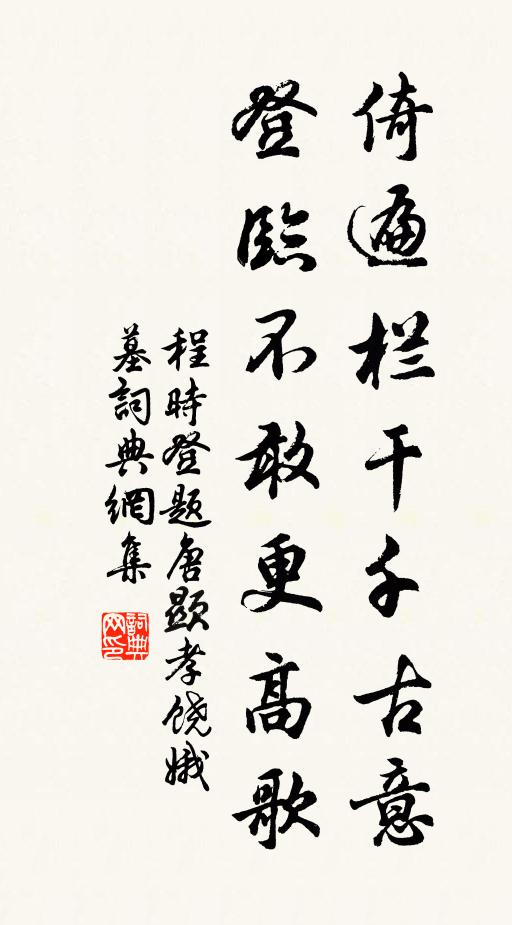 倚遍栏干千古意
登临不敢更高歌
程時登题唐顕孝饶娥
墓詞典網集
詞典网印